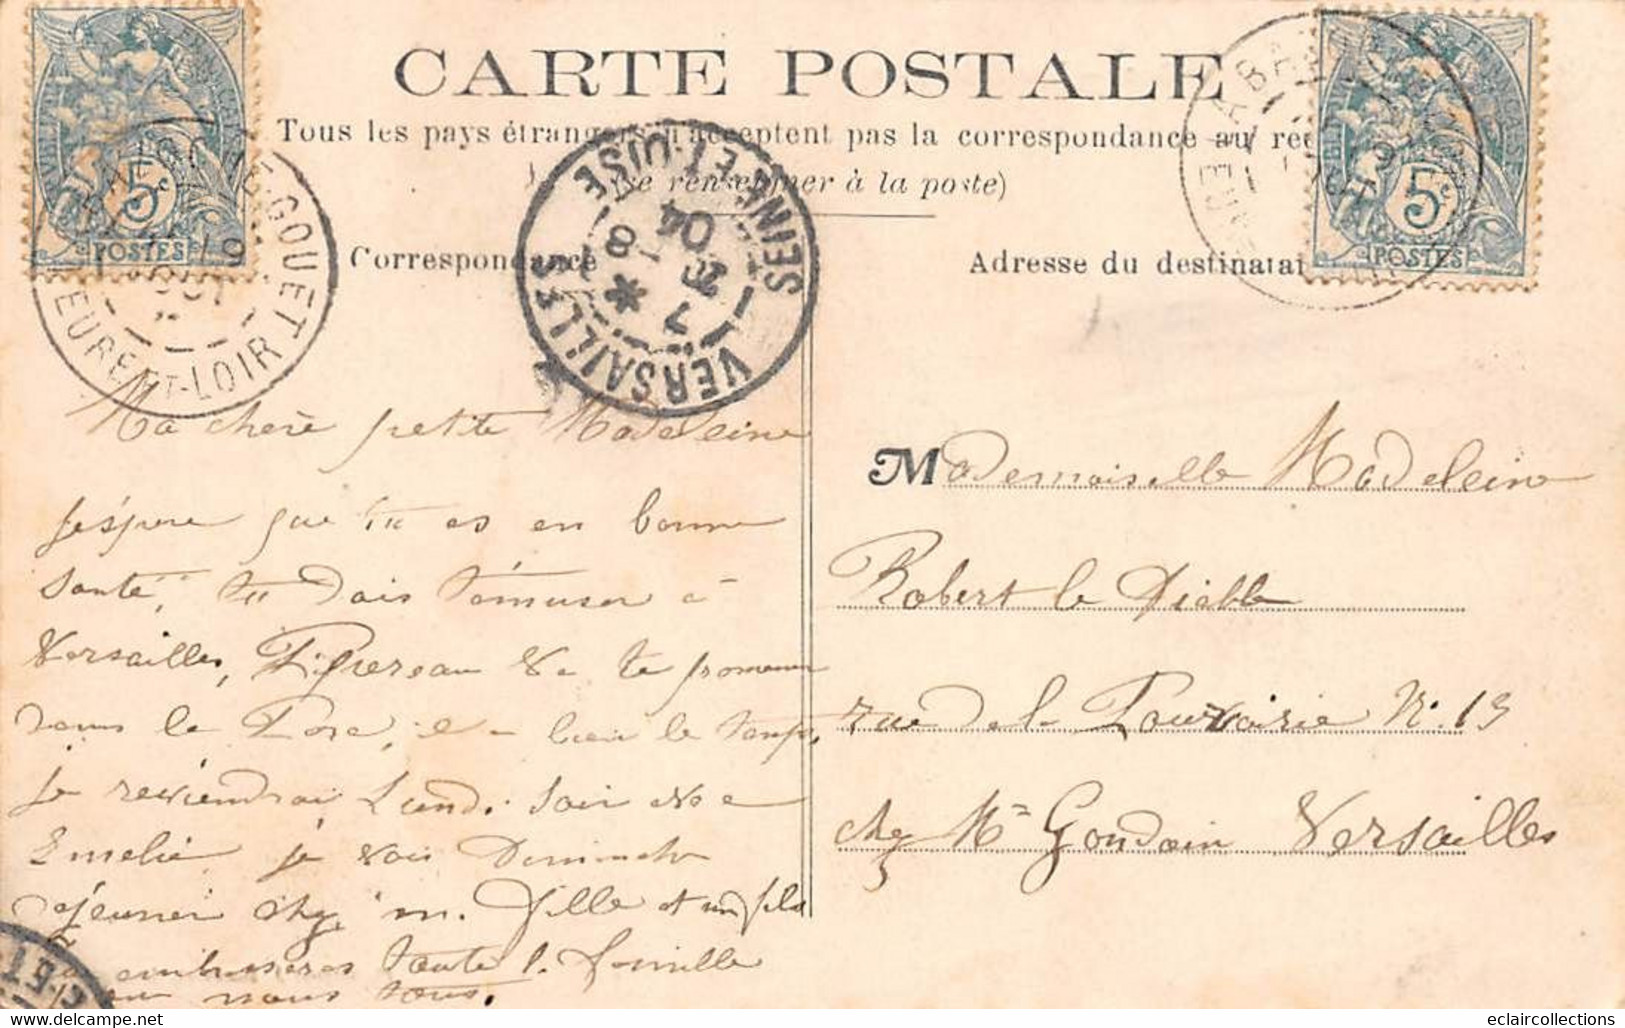 CARTE POSTALE
Tous les pays étrangers n'acceptent pas la correspondance au
(se renseigner à la poste)
Correspondance
Adresse du destinatai
5c
POSTES
5c
POSTES
GOUET
EURE-ET-LOIR
VERSAILLES
SEINE-ET-OISE
7
8
04
Ma chère petite Madeleine
J'éspere que tu es en bonne
santé, tu dois t'amuser à
Versailles, va te promener
dans le Parc, bien le temps,
je reviendrai Lundi soir avec
Emelie je vais Dimanche
déjeuner chez m. Fille et un fils
Tu embrasseras toute l. famille
pour nous tous.
Mademoiselle Madeleine
Robert le Diable
rue de la Pourvoirie N. 13
chez Mr Goudain Versailles
eclaircollections